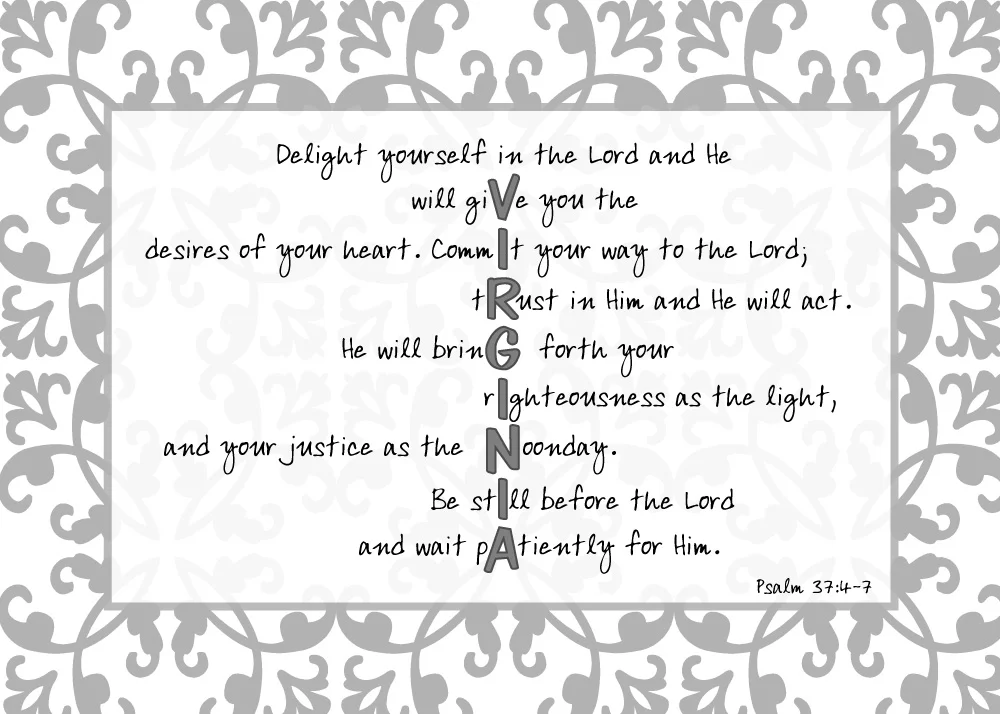 Delight yourself in the Lord and He
will giVe you the
desires of your heart. CommIt your way to the Lord;
tRust in Him and He will act.
He will brinG forth your
rIghteousness as the light,
and your justice as the Noonday.
Be stIll before the Lord
and wait pAtiently for Him.
Psalm 37:4-7